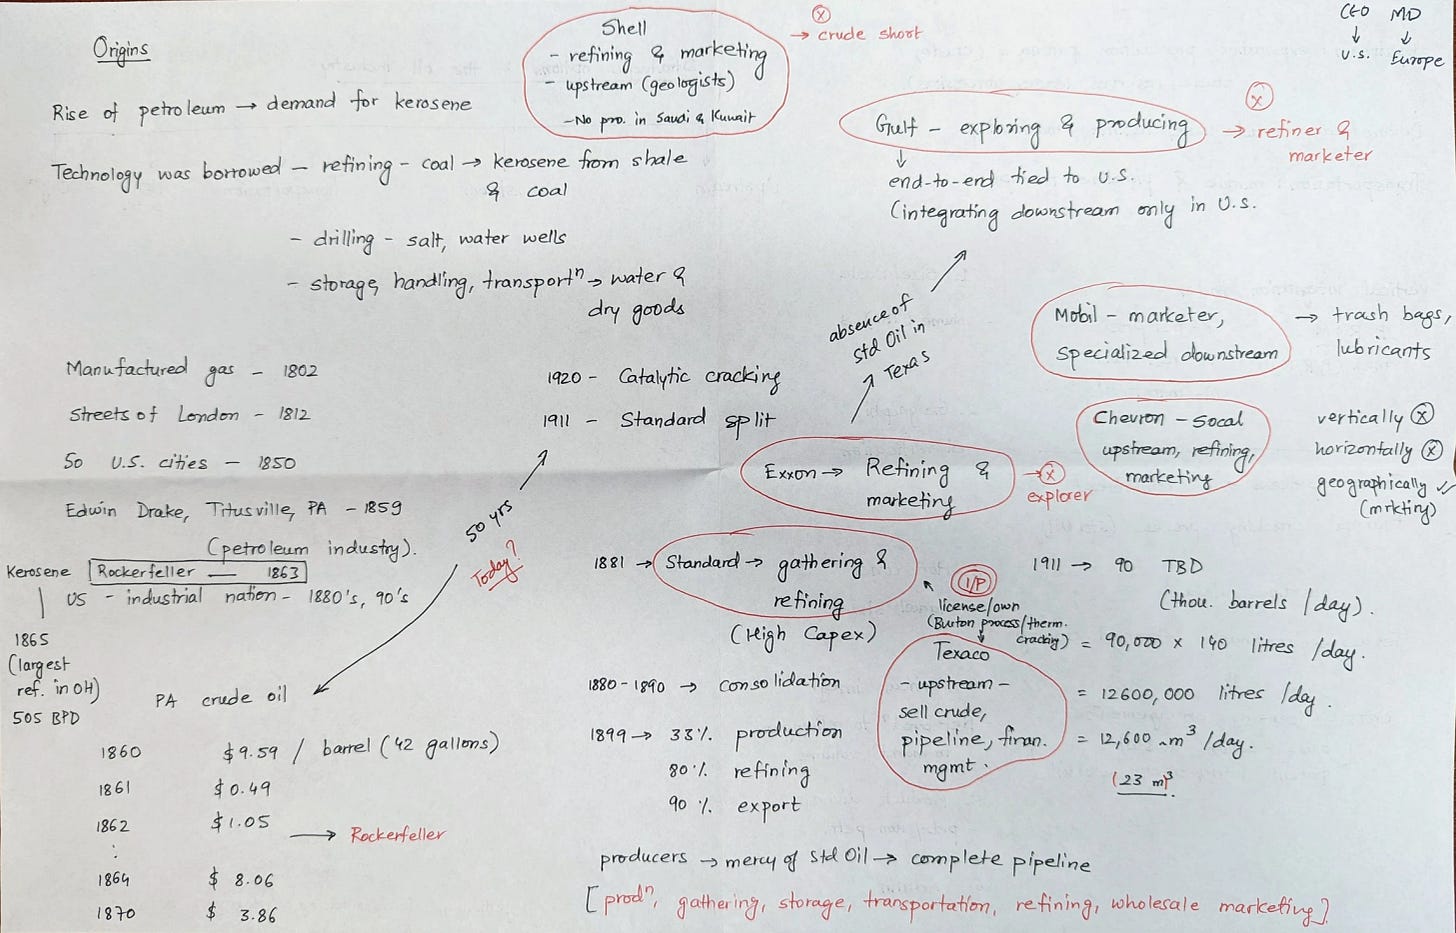 Origins
Rise of petroleum → demand for kerosene
Technology was borrowed – refining – coal → kerosene from shale
& coal
- drilling - salt, water wells
- storage, handling, transportⁿ → water &
dry goods
Manufactured gas - 1802
Streets of London - 1812
50 U.S. cities - 1850
Edwin Drake, Titusville, PA - 1859
(petroleum industry).
Kerosene Rockerfeller — 1863
US - industrial nation - 1880's, 90's
1865
(largest
ref. in OH)
505 BPD
PA crude oil
1860 $9.59 / barrel (42 gallons)
1861 $0.49
1862 $1.05 → Rockerfeller
:
1864 $ 8.06
1870 $ 3.86
50 yrs
Today?
Shell
- refining & marketing
- upstream (geologists)
- No pro. in Saudi & Kuwait
ⓧ
→ crude short
CEO MD
↓ ↓
U.S. Europe
Gulf - exploring & producing → ⓧ
refiner &
marketer
↓
end-to-end tied to U.S.
(integrating downstream only in U.S.
absence of
Std Oil in
Texas
Mobil - marketer,
specialized downstream
→ trash bags,
lubricants
1920 - Catalytic cracking
1911 - Standard split
Chevron - Socal
upstream, refining,
marketing
vertically ⓧ
horizontally ⓧ
geographically ✓
(mrkting)
Exxon → Refining &
marketing
→ ⓧ
explorer
1881 → Standard → gathering &
refining
(High Capex)
I/P
license/own
(Burton process/therm.
cracking)
Texaco
- upstream -
sell crude,
pipeline, finan.
mgmt.
1911 → 90 TBD
(thou. barrels /day).
= 90,000 x 140 litres /day.
= 12600,000 litres /day.
= 12,600 m³ /day.
(23 m)³
1880-1890 → consolidation
1899 → 33% production
80% refining
90% export
producers → mercy of Std Oil → complete pipeline
[prodⁿ, gathering, storage, transportation, refining, wholesale marketing]